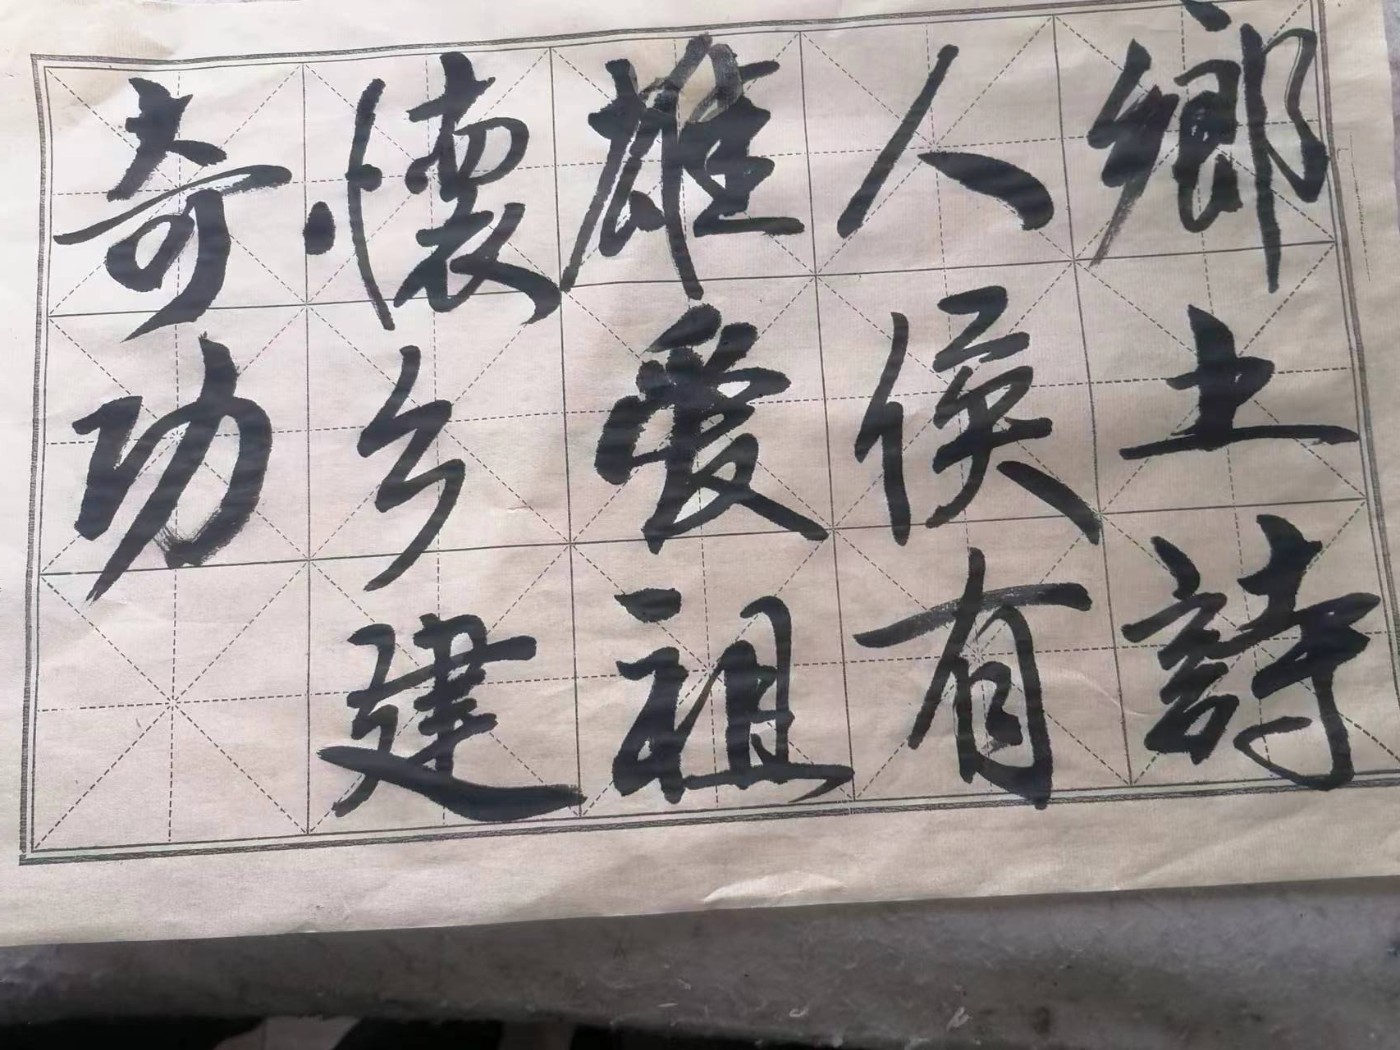 鄉土詩
人侯有
雄爱祖
懷乡建
奇功